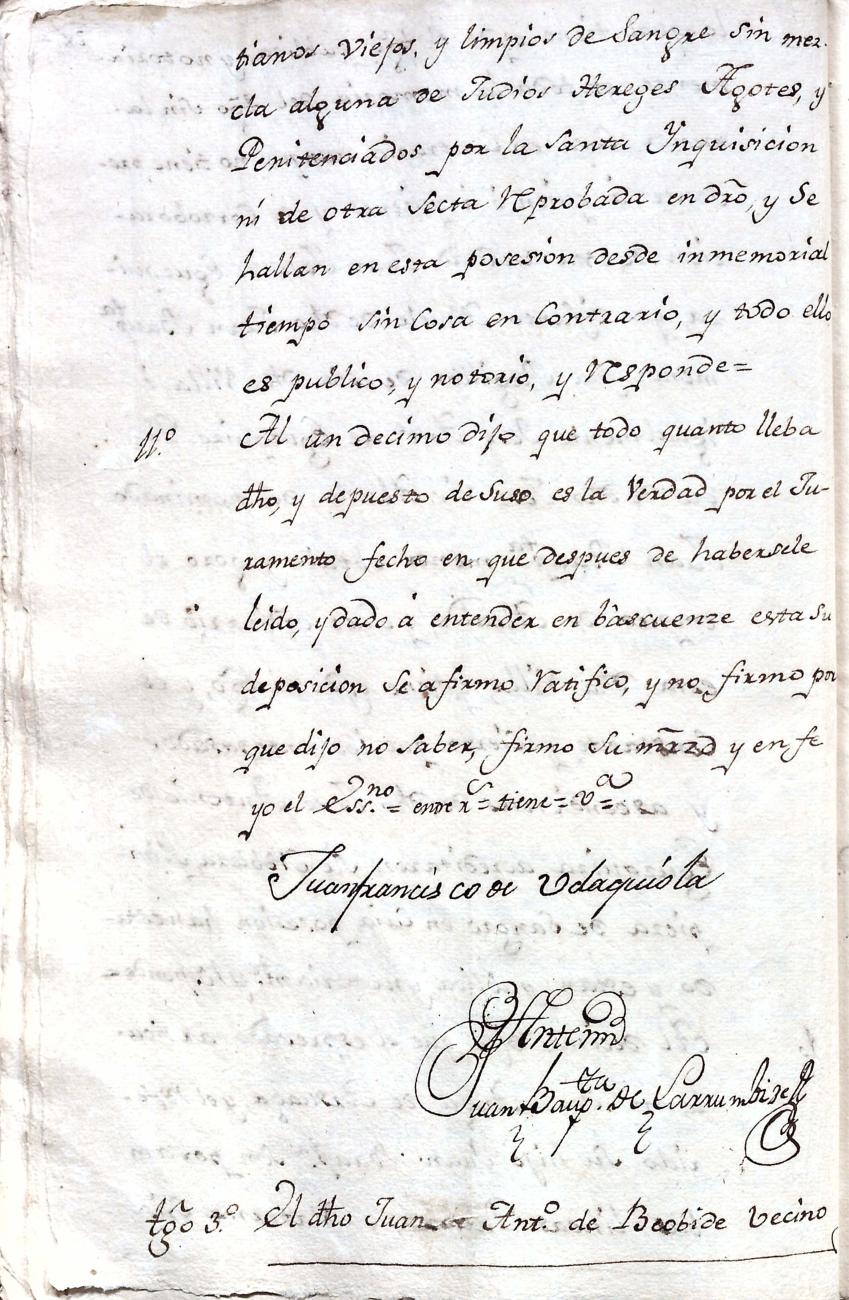 tianos Viejos, y limpios de Sangre sin mez-
cla alguna de Judios Hereges Agotes, y
Penitenciados por la Santa Ynquisicion
ni de otra Secta Reprobada en dro, y Se
hallan en esta posesion desde inmemorial
tiempo sin Cosa en Contrario, y todo ello
es publico, y notorio, y Responde=
11.º Al undecimo dijo que todo quanto lleba
dho, y depuesto de Suso es la Verdad por el Ju-
ramento fecho en que despues de habersele
leido, y dado á entender en bascuenze esta su
deposicion Se afirmo Ratifico, y no firmo por
que dijo no saber, firmo Su mrzd y en fe
yo el Ess.no = = tiene = v.a =
Juan francisco de Udaquiola
Antemi
Juan Baup.ta de Larrumbide
tgo 3.º El dho Juan Ant.º de Beobide vecino